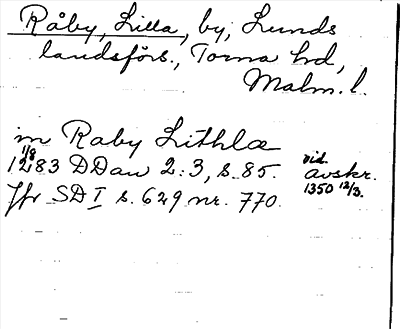 Råby, Lilla, by, Lunds
landsförs., Torna hd,
Malm. l.
in Raby Lithlæ
11/8
1283 DDan 2:3, s. 85. vid. avskr.
1350 12/3.
Jfr SD I s. 629 nr. 770.